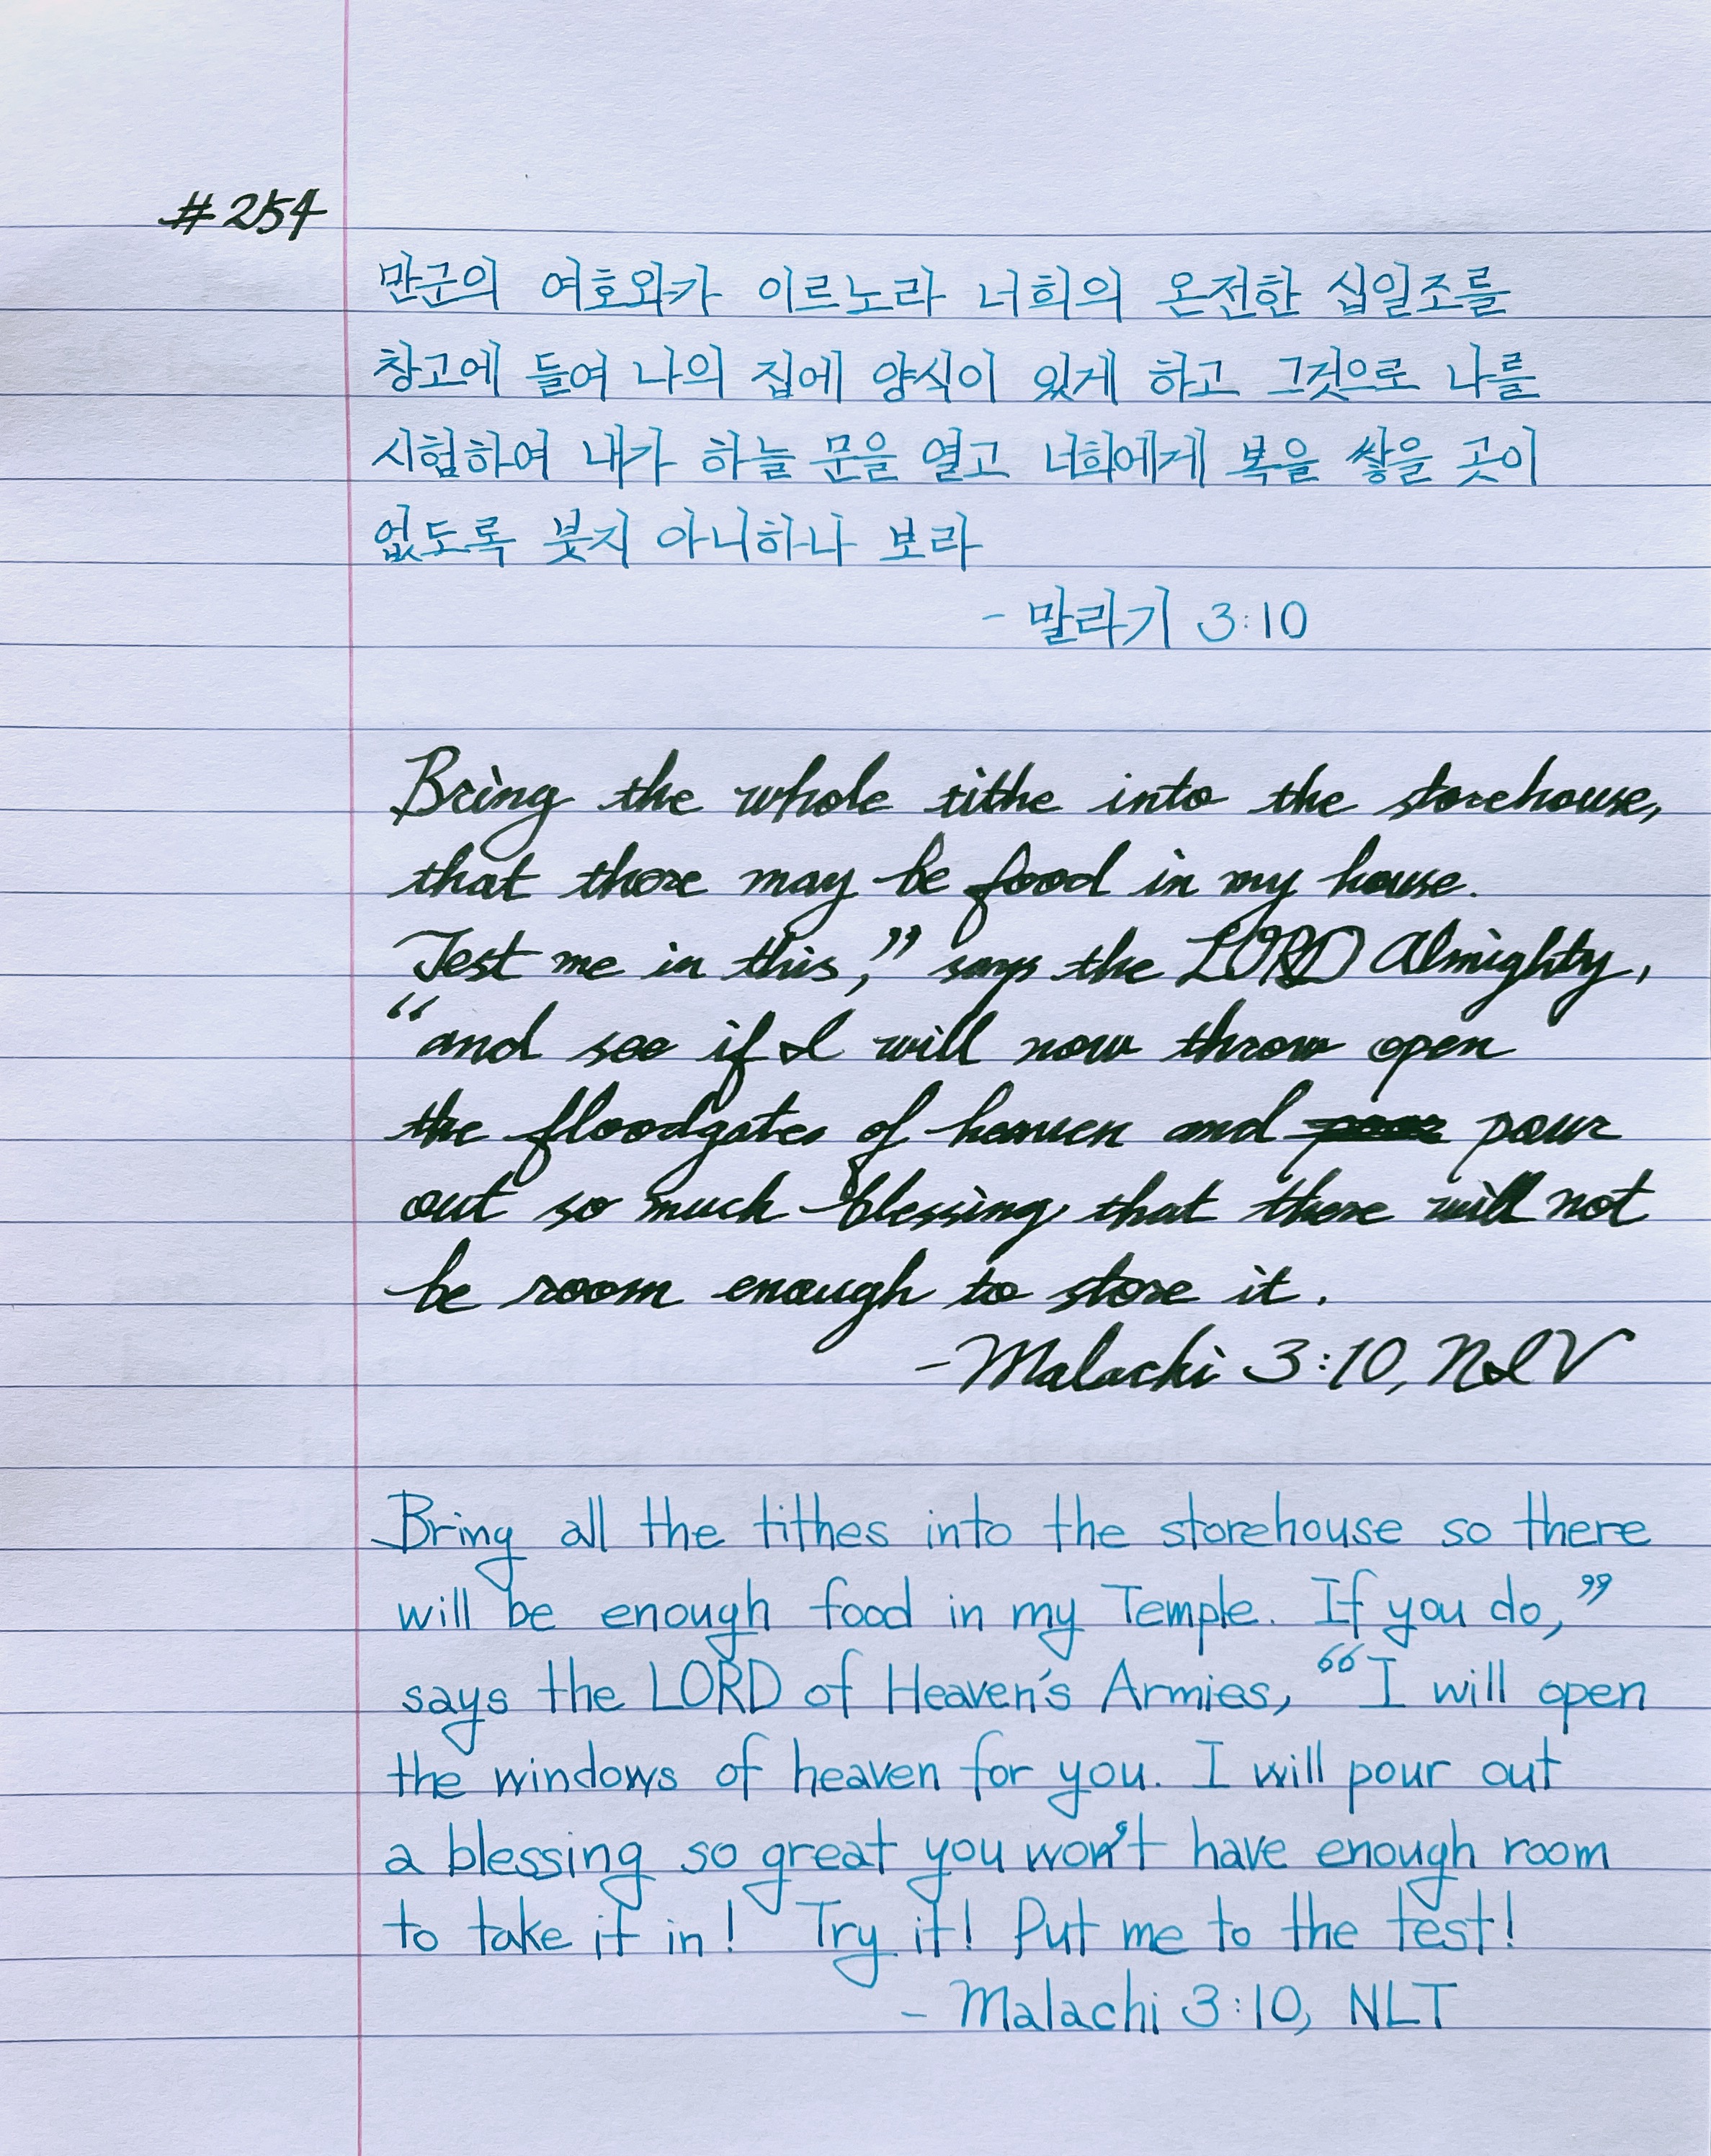 #254
만군의 여호와가 이르노라 너희의 온전한 십일조를
창고에 들여 나의 집에 양식이 있게 하고 그것으로 나를
시험하여 내가 하늘 문을 열고 너희에게 복을 쌓을 곳이
없도록 붓지 아니하나 보라
- 말라기 3:10
Bring the whole tithe into the storehouse,
that there may be food in my house.
Test me in this,” says the LORD Almighty,
“and see if I will now throw open
the floodgates of heaven and pour
out so much blessing that there will not
be room enough to store it.
-Malachi 3:10, NIV
Bring all the tithes into the storehouse so there
will be enough food in my Temple. If you do,”
says the LORD of Heaven's Armies, “I will open
the windows of heaven for you. I will pour out
a blessing so great you won't have enough room
to take it in! Try it! Put me to the test!
- Malachi 3:10, NLT